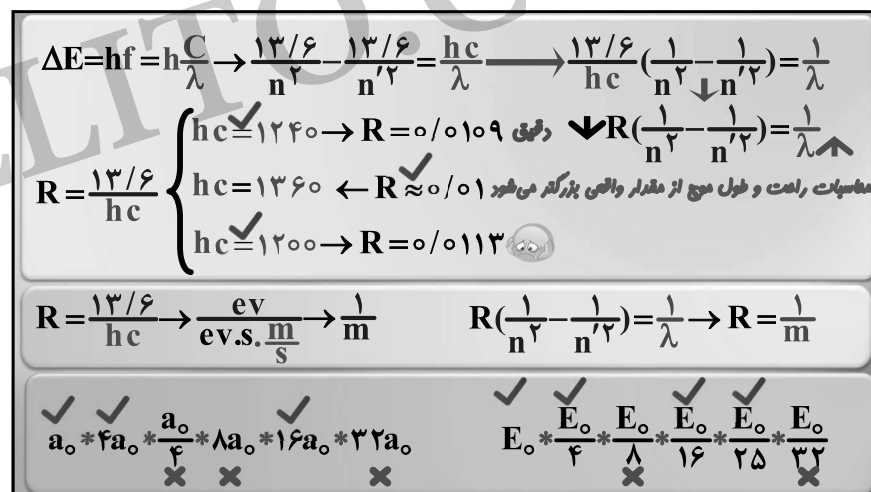 LLITO.C
ΔE=hf=h C/λ → ۱۳/۶/n^۲ − ۱۳/۶/n'^۲ = hc/λ → ۱۳/۶/hc (۱/n^۲ − ۱/n'^۲) = ۱/λ
hc=۱۲۴۰ → R=۰/۰۱۰۹ دقیق ↓R(۱/n^۲ − ۱/n'^۲) = ۱/λ↑
R = ۱۳/۶/hc { hc=۱۳۶۰ ← R≈۰/۰۱ محاسبات راحت و طول موج از مقدار واقعی بزرگتر می‌شود
hc=۱۲۰۰ → R=۰/۰۱۱۳
R = ۱۳/۶/hc → ev/ev.s.m/s → ۱/m R(۱/n^۲ − ۱/n'^۲) = ۱/λ → R = ۱/m
a۰ * ۴a۰ * a۰/۴ * ۸a۰ * ۱۶a۰ * ۳۲a۰ E۰ * E۰/۴ * E۰/۸ * E۰/۱۶ * E۰/۲۵ * E۰/۳۲